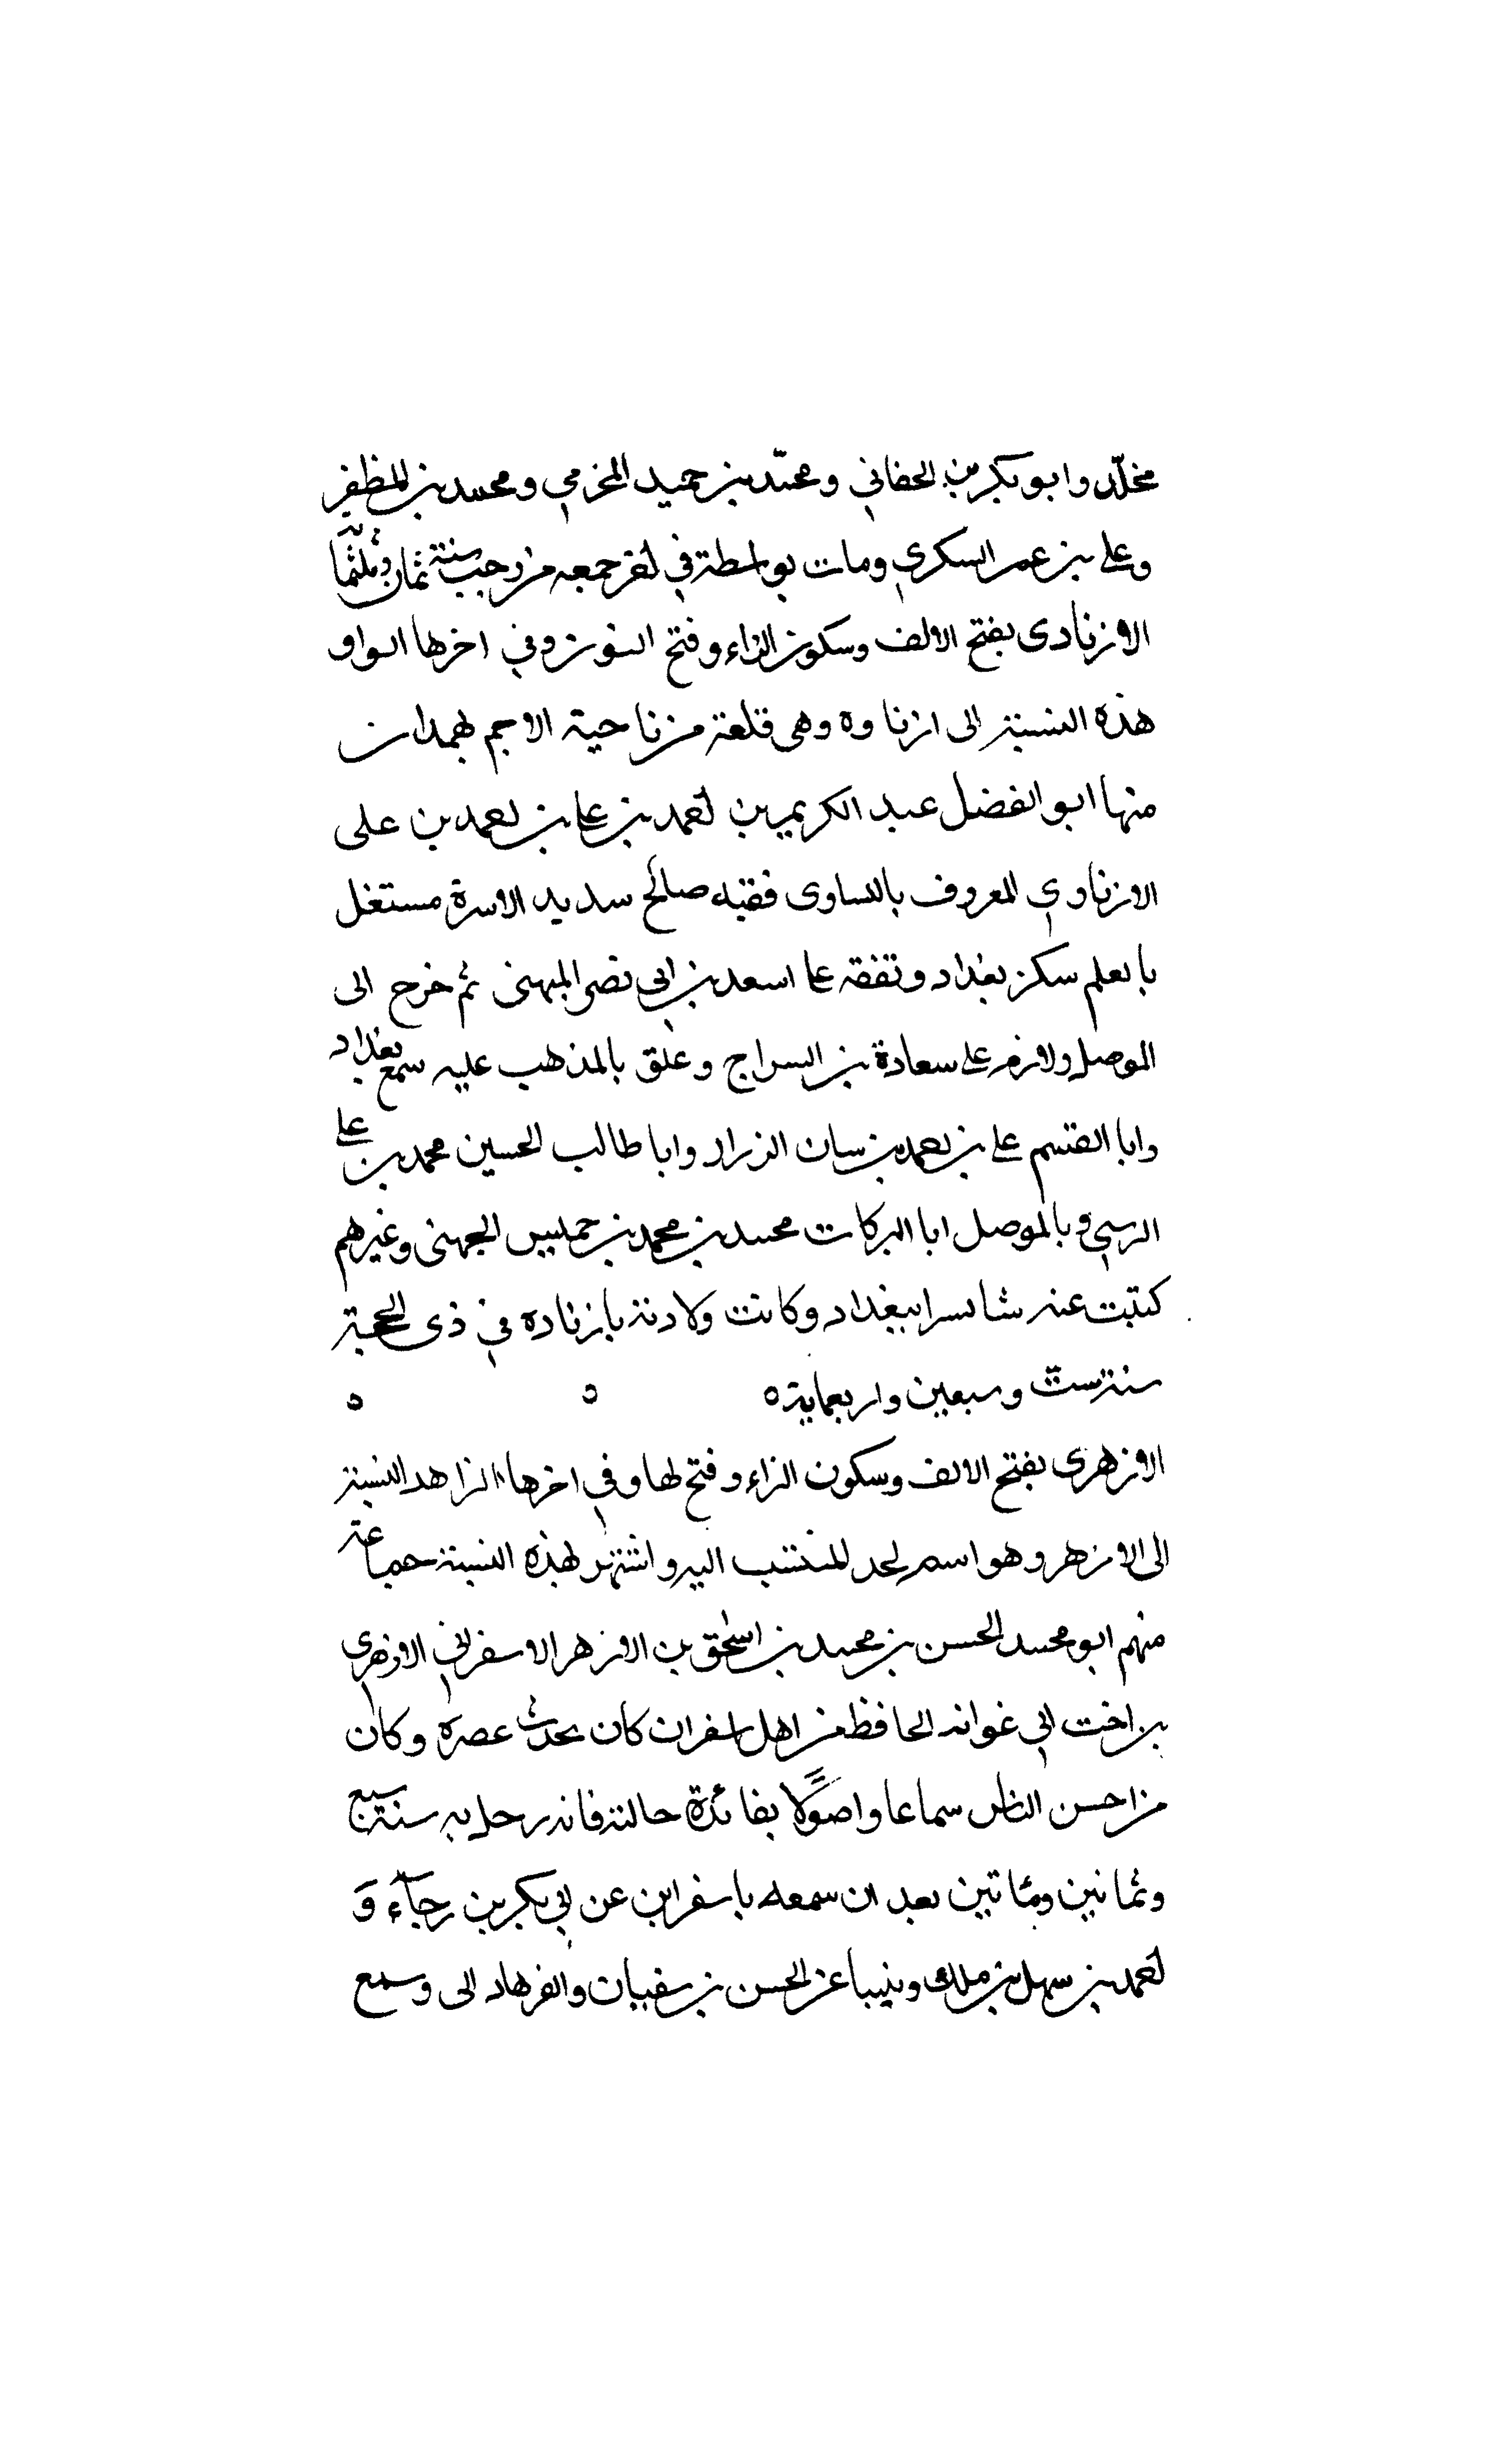 مخلد وابو بكر بن الحفاني ومحمد بن حميد المخرمي ومحمد بن المظفر
وعلي بن عمر السكري ومات بواسطة في اخر جمعه من رجب سنة ثمان وثلثمائة
الازنادى بفتح الالف وسكون الزاء وفتح النون وفي اخرها الواو
هذه النسبة الى ازناوه وهى قلعة من ناحية الاجم بهمدان
منها ابو الفضل عبد الكريم بن احمد بن على بن احمد بن على
الازناوي المعروف بالساوى فقيه صالح سديد الاسرة مستغل
بالعلم سكن بغداد وتفقه على اسعد بن ابي نصر الميهنى ثم خرج الى
الموصل ولازم على سعادة بن السراج وعلق بالمذهب عليه سمع بغداد
وابا القسم على بن احمد بن سان الزراد وابا طالب الحسين محمد بن على
الرسي وبالموصل ابا البركات محمد بن محمد بن خميس الجهنى وغيرهم
كتبت عنه ببغداد وكانت ولادته بازناده في ذى الحجة
سنة ست وسبعين واربعماية ه ه ه
الازهرى بفتح الالف وسكون الزاء وفتح لها وفي اخرها الزا هد النسبة
الى الازهر وهو اسم لجد المنتسب اليه واشتهر لهذه النسبة جماعة
منهم ابو محمد الحسن بن محمد بن اسحق بن الازهر الاسفراني الازهري
بن اخت ابي عوانه الحافظ من اهل اسفران كان يحدث عصره وكان
من احسن الناس سماعا واصولا بفائدة خالته فانه رحل به سنة سبع
وثمانين ومئاتين بعد ان سمعه باسفراين عن ابي بكر بن رجآء وَ
احمد بن سهل بن ملك وبنيسا عن الحسن بن سفيان والفرهاد الى وسمع